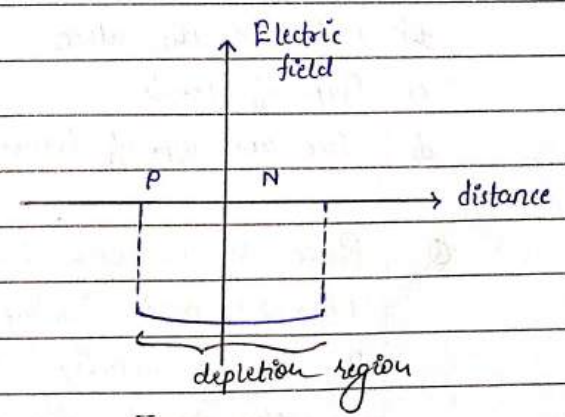 Electric
field
P N
distance
depletion region